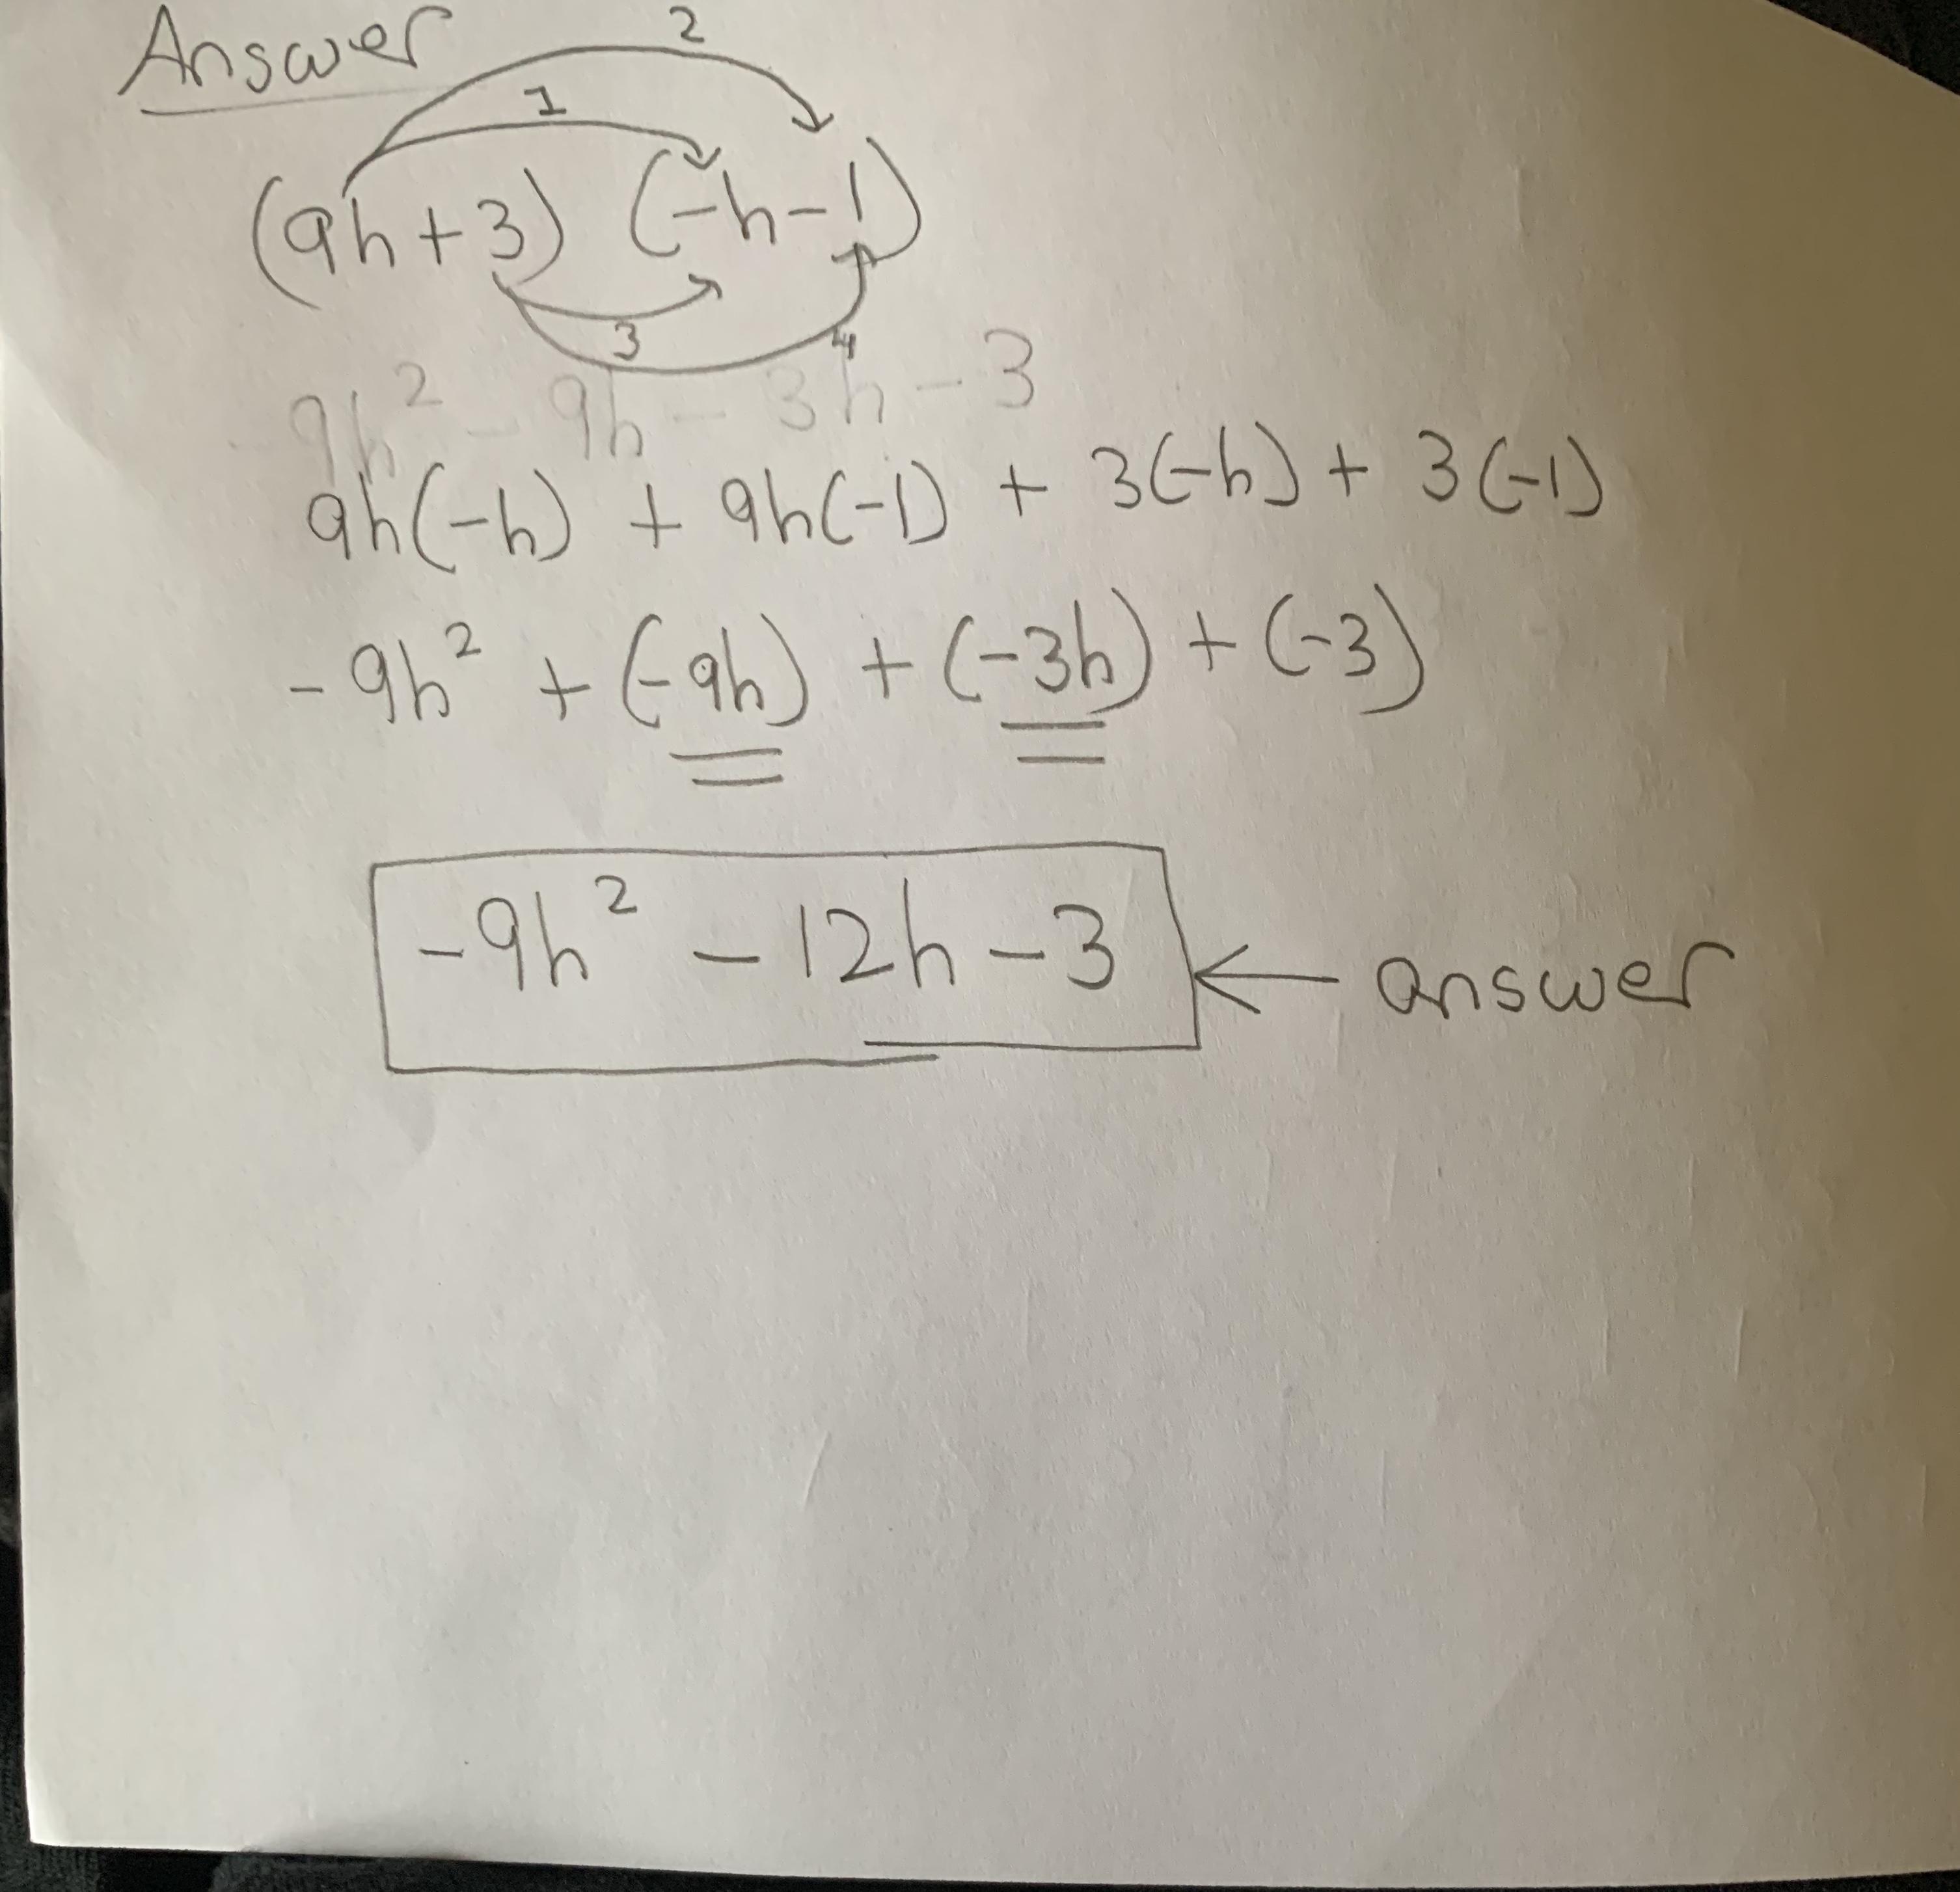 Answer
2
1
(9h+3) (-h-1)
3 4
-9h² - 9h - 3h - 3
9h(-h) + 9h(-1) + 3(-h) + 3(-1)
-9h² + (-9h) + (-3h) + (-3)
-9h² - 12h - 3 ← answer